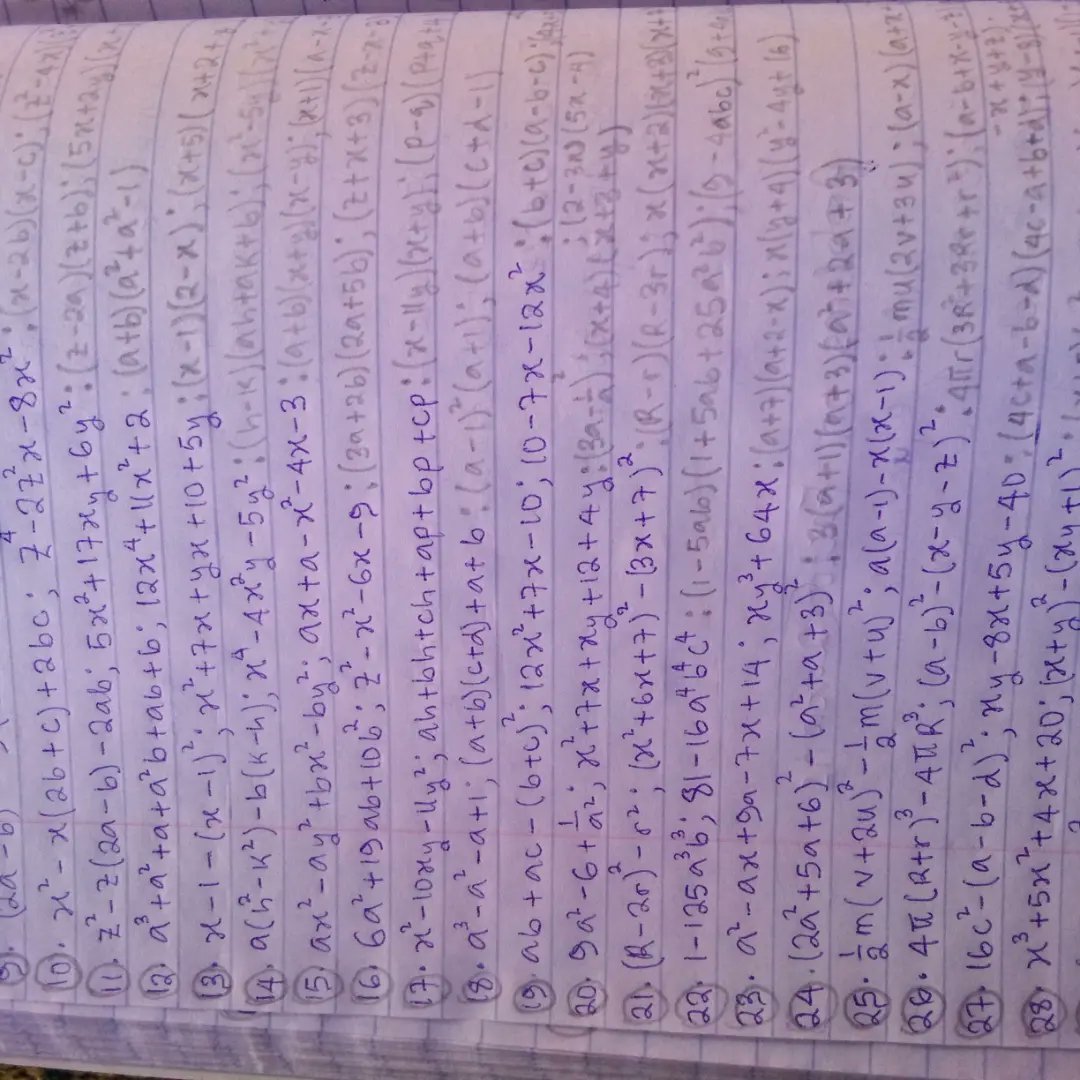 9. (2a-b)
10. x² - x(2b+c) + 2bc; z⁴ - 2z²x - 8x² : (x-2b)(x-c); (z²-4x)
11. z² - z(2a-b) - 2ab; 5x² + 17xy + 6y² : (z-2a)(z+b); (5x+2y)(x+
12. a³+a²+a+a²b+ab+b; 12x⁴+11x²+2 : (a+b)(a²+a²-1)
13. x-1-(x-1)²; x²+7x+yx+10+5y : (x-1)(2-x); (x+5)(x+2+y
14. a(h²-k²)-b(k-h); x⁴-4x²y-5y² : (h-k)(ah+ak+b); (x²-5y)(x²+
15. ax²-ay²+bx²-by²; ax+a-x²-4x-3 : (a+b)(x+y)(x-y); (x+1)(a-x-
16. 6a²+19ab+10b²; z²-x²-6x-9 : (3a+2b)(2a+5b); (z+x+3)(z-x-3
17. x²-10xy-11y²; ah+bh+ch+ap+bp+cp : (x-11y)(x+y); (p-q)(p+q+
18. a³-a²-a+1; (a+b)(c+d)+a+b : (a-1)²(a+1); (a+b)(c+d-1)
19. ab+ac-(b+c)²; 12x²+7x-10; 10-7x-12x² : (b+c)(a-b-c); (4x+
20. 9a²-6+1/a²; x²+7x+xy+12+4y : (3a-1/a)²; (x+4)(x+3+y) ; (2-3x)(5x-4)
21. (R-2r)²-r²; (x²+6x+7)²-(3x+7)² : (R-r)(R-3r); x(x+2)(x+3)(x+
22. 1-125a³b³; 81-16a⁴b⁴c⁴ : (1-5ab)(1+5ab+25a²b²); (9-4abc)²(9+4
23. a²-ax+9a-7x+14; xy³+64x : (a+7)(a+2-x); x(y+4)(y²-4y+16)
24. (2a²+5a+6)²-(a²+a+3)² : 3(a+1)(a+3)(a²+2a+3)
25. ½m(v+2u)²-½m(v+u)²; a(a-1)-x(x-1) : ½mu(2v+3u); (a-x)(a+x-
26. 4π(R+r)³-4πR³; (a-b)²-(x-y-z)² : 4πr(3R²+3Rr+r²); (a-b+x-y-
27. 16c²-(a-b-d)²; xy-8x+5y-40 : (4c+a-b-d)(4c-a+b+d); (y-8)(x+
28. x³+5x²+4x+20; (x+y)²-(xy+1)² :